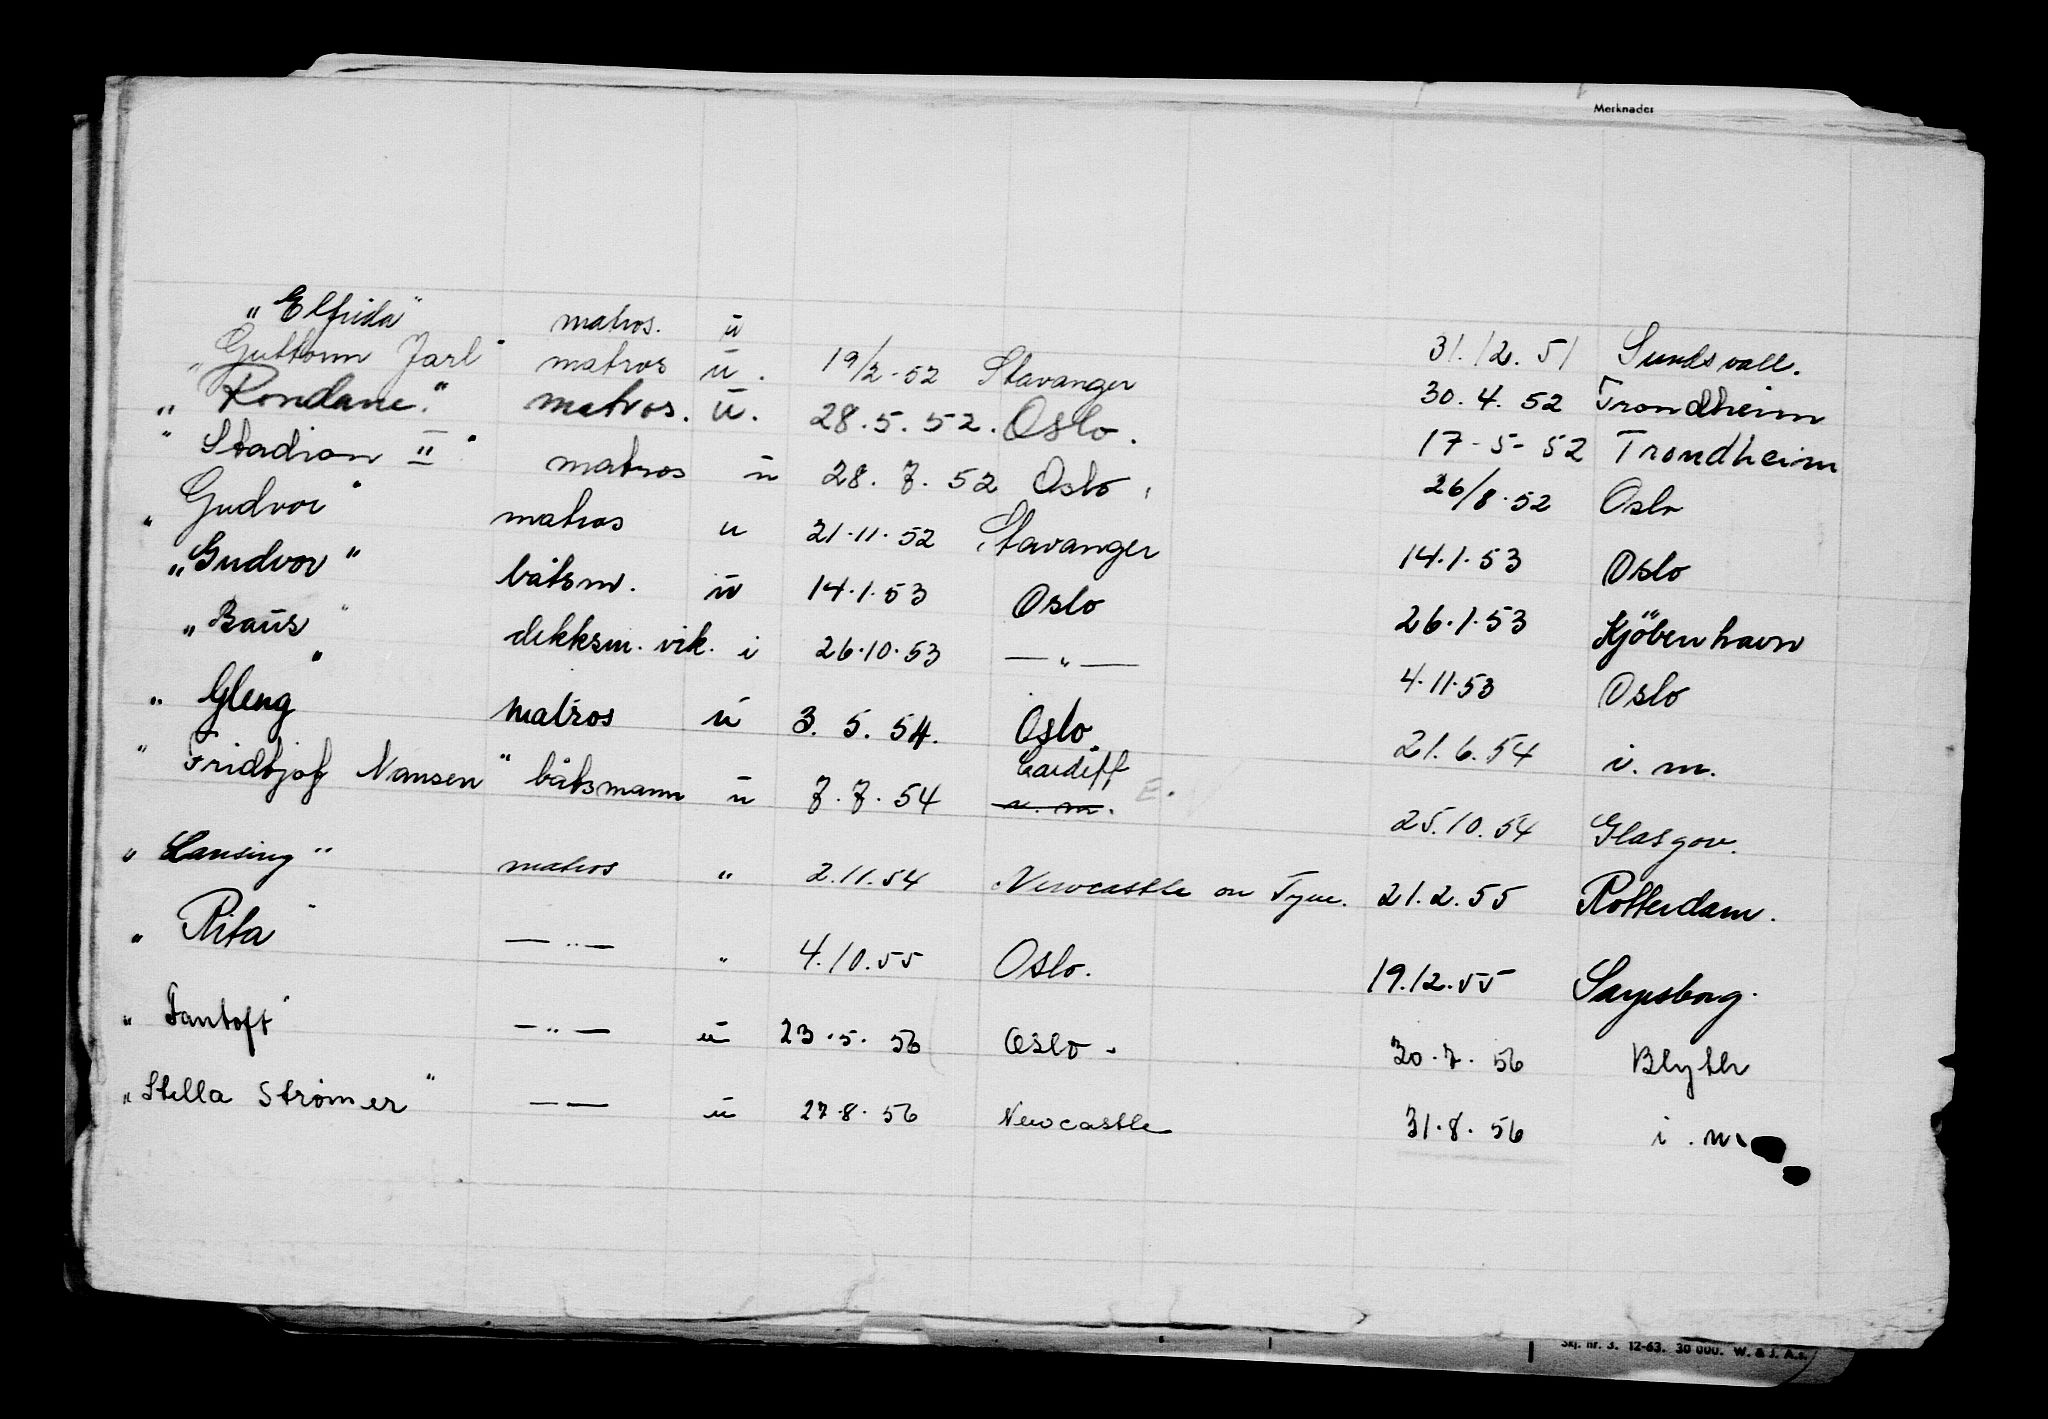 Merknader
„Elfrida“ matros. u 31.12.51 Sundsvall.
„Guttorm Jarl“ matros u. 19/2-52 Stavanger 30.4.52 Trondheim
„Rondane.“ matros. u. 28.5.52. Oslo. 17-5-52 Trondheim
„Stadion II“ matros u 28.7.52 Oslo. 26/8.52 Oslo
„Gudvor“ matros u 21.11.52 Stavanger 14.1.53 Oslo
„Gudvor“ båtsm. u 14.1.53 Oslo 26.1.53 Kjöbenhavn
„Baus“ dekksm. vik. i 26.10.53 —„— 4.11.53 Oslo
„Gleng“ matros u 3.5.54. Oslo 21.6.54 i. m.
„Fridtjof Nansen“ båtsmann u 7.7.54 Cardiff i. m. E. 25.10.54 Glasgow.
„Lansing“ matros „ 2.11.54 Newcastle on Tyne. 21.2.55 Rotterdam.
„Rita“ —„— „ 4.10.55 Oslo. 19.12.55 Sarpsborg.
„Fantoft“ —„— u 23.5.56 Oslo. 30.7.56 Blyth
„Stella Strømer“ — — u 27.8.56 Newcastle 31.8.56 i. m.
Skj. nr. 3. 12-63. 30 000. W. & J. A.s.